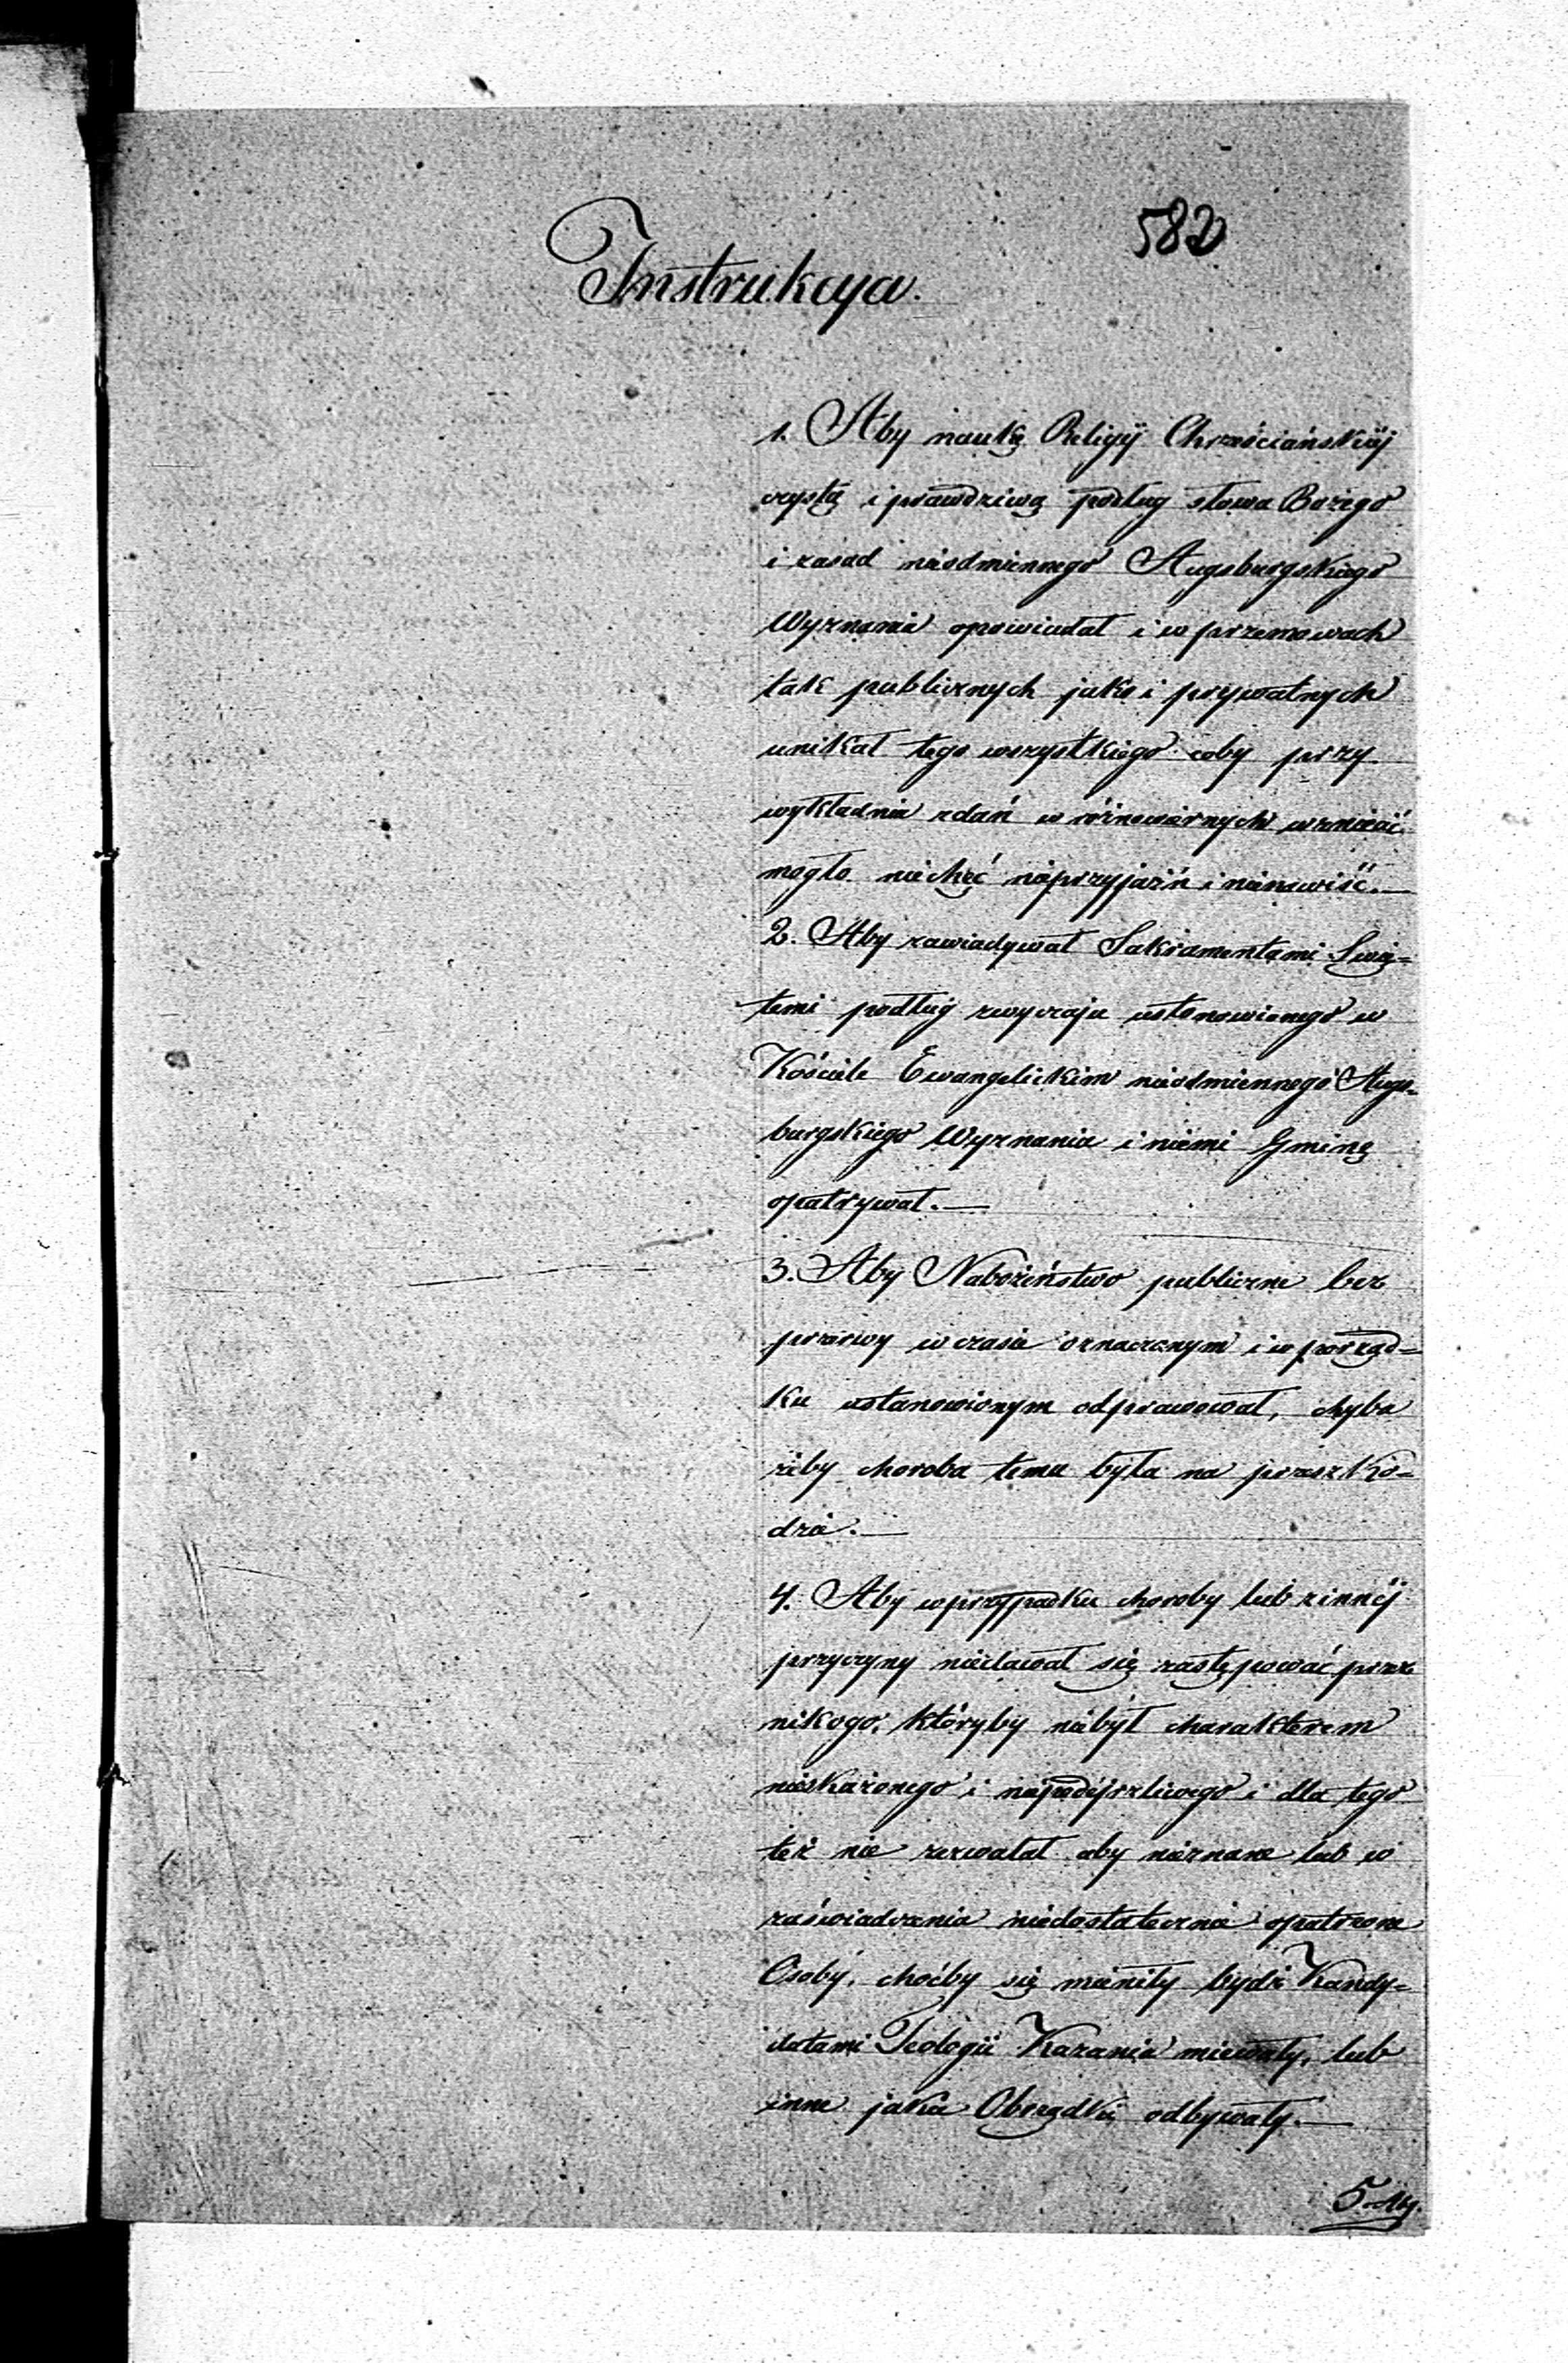 582
Instrukcya.
1. Aby naukę Religij Chrześciańskiéj
czystą i prawdziwą podług słowa Bożego
i zasad nieodmiennego Augsburgskiego
Wyznania opowiadał i w przemowach
tak publicznych jako i prywatnych
unikał tego wszystkiego coby przy
wykładnia zdań w różnowiernych wzniecić
mogło niechęć nieprzyjaźń i nienawiść.—
2. Aby zawiadywał Sakramentami Swię-
temi podług zwyczaju ustanowionego w
Kościele Ewangelickim nieodmiennego Augs-
burgskiego Wyznania i niemi Gminę
opatrywał.—
3. Aby Nabożeństwo publiczne bez
przerwy w czasie oznaczonym i w porząd-
ku ustanowionym odprawował, chyba
żeby choroba temu była na przeszko-
dzie.—
4. Aby w przypadku choroby lub z innéj
przyczyny niedawał się zastępować przez
nikogo, któryby niebył charakterem
nieskażonego i niepodejrzliwego i dla tego
też nie zezwalał aby nieznane lub w
zaświadczenia niedostatecznie opatrzone
Osoby, choćby się mieniły bydź Kandy-
datami Teologii Kazania miewały, lub
inne jakie Obrządki odbywały.—
5. Aby.